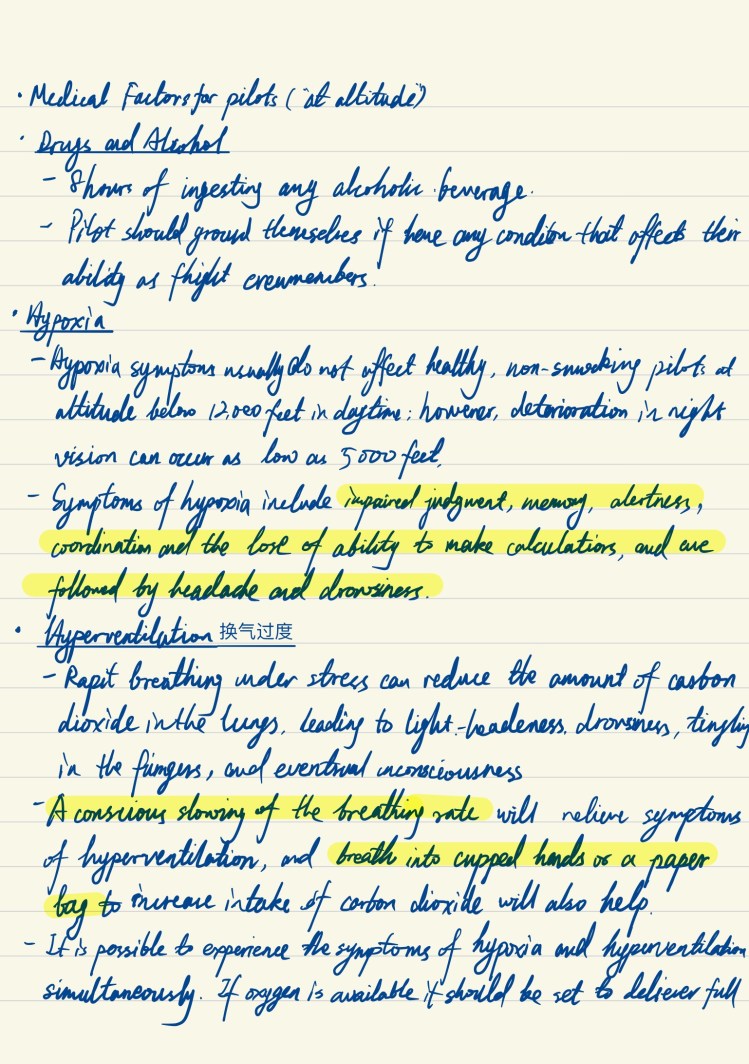 · Medical Factors for pilots ("at altitude")
· Drugs and Alcohol
- 8 hours of ingesting any alcoholic beverage.
- Pilot should ground themselves if have any condition that affects their
ability as flight crewmembers.
· Hypoxia
- Hypoxia symptoms usually do not affect healthy, non-smocking pilots at
altitude below 12,000 feet in daytime; however, deterioration in night
vision can occur as low as 5000 feet.
- Symptoms of hypoxia include impaired judgment, memory, alertness,
coordination and the lose of ability to make calculations, and are
followed by headache and drowsiness.
· Hyperventilation 换气过度
- Rapit breathing under stress can reduce the amount of carbon
dioxide in the lungs, leading to light-headeness. drowsiness, tingling
in the fumgers, and eventrual unconsciousness
- A conscious slowing of the breathing rate will relieve symptoms
of hyperventilation, and breath into cupped hands or a paper
bag to increase intake of carbon dioxide will also help.
- It is possible to experience the symptoms of hypoxia and hyperventilation
simultaneously. If oxygen is available it should be set to deliever full